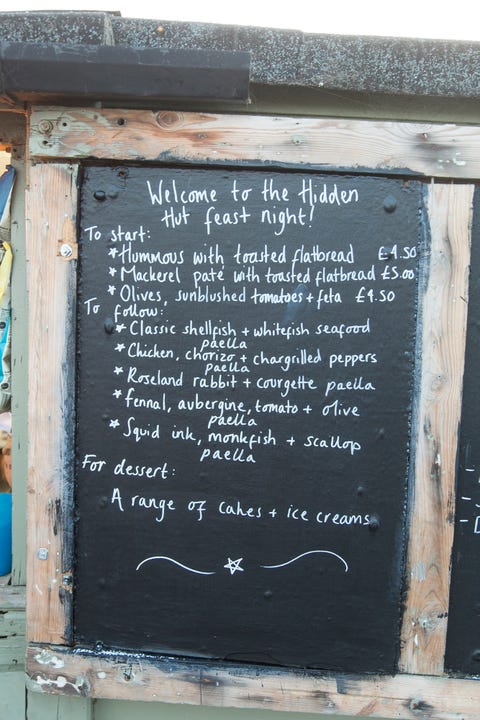 Welcome to the Hidden
Hut feast night!
To start:
* Hummous with toasted flatbread £4.50
* Mackerel paté with toasted flatbread £5.00
* Olives, sunblushed tomatoes + feta £4.50
To follow:
* Classic shellfish + whitefish seafood
paella
* Chicken, chorizo + chargrilled peppers
paella
* Roseland rabbit + courgette paella
* Fennal, aubergine, tomato + olive
paella
* Squid ink, monkfish + scallop
paella
For dessert:
A range of cakes + ice creams